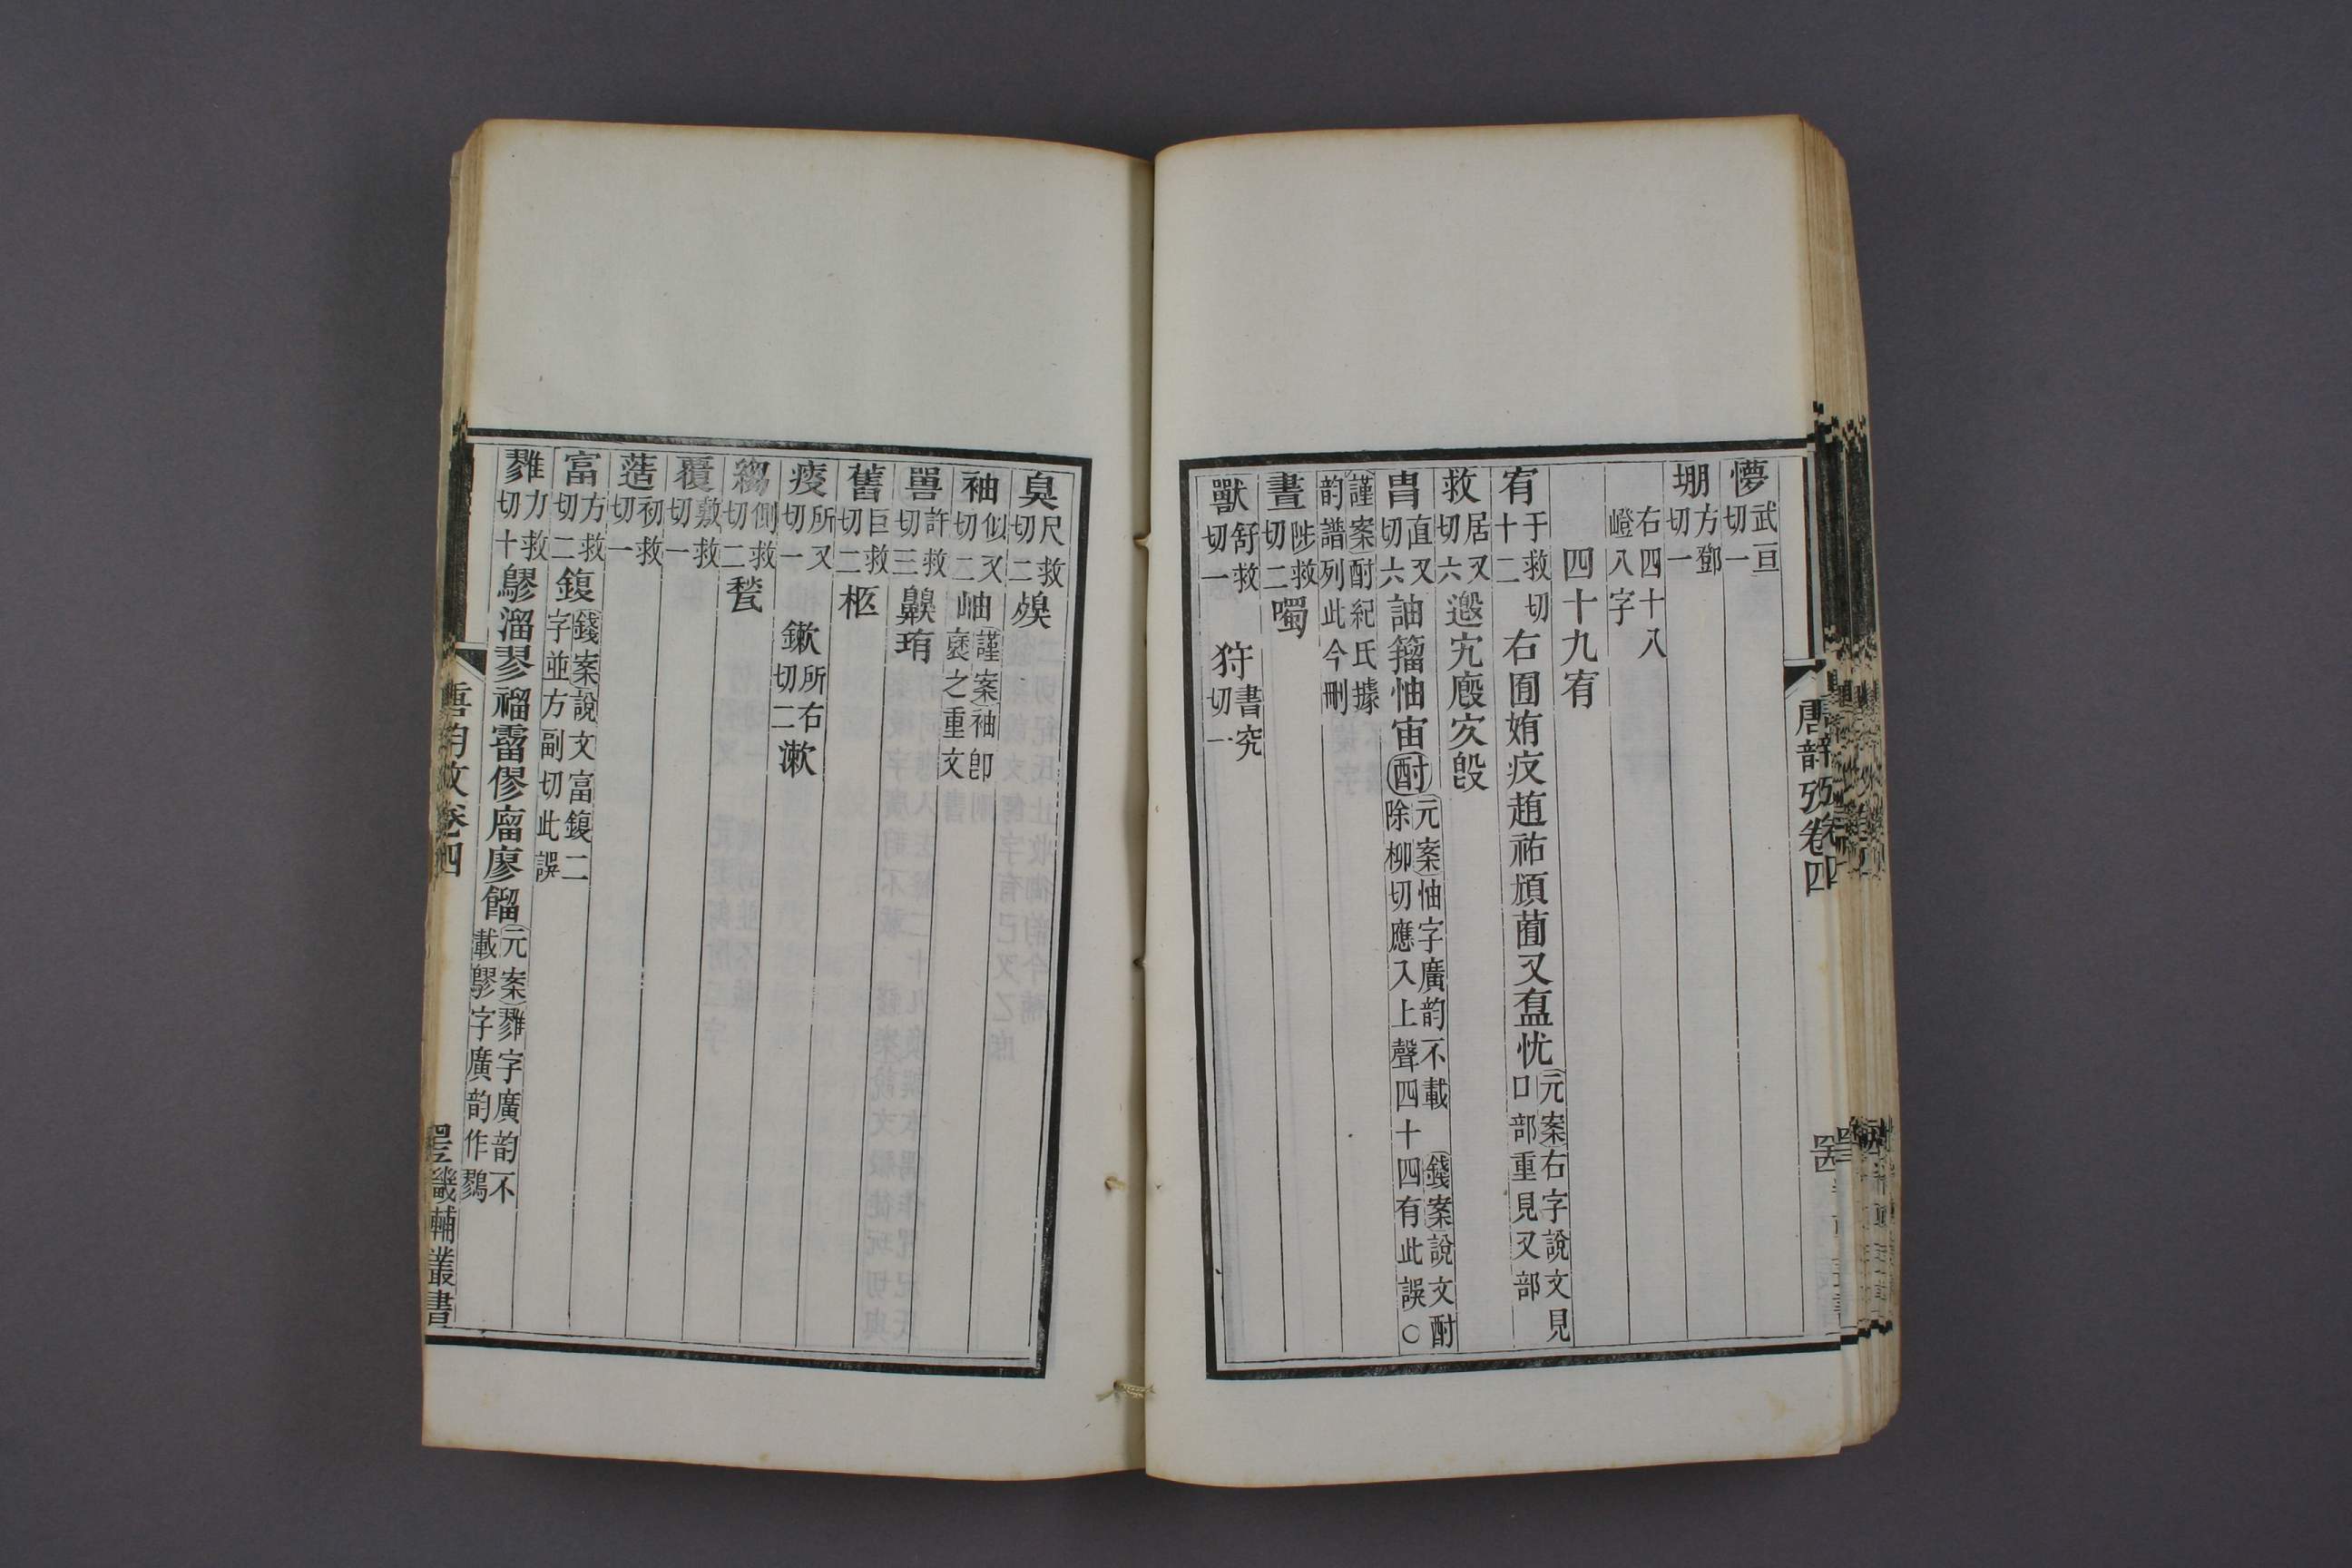 懜武亘切一
堋方鄧切一
右四十八嶝八字
四十九宥
宥于救切十二右囿姷疫趙祐頄蔔又盇忧元案右字說文見口部重見又部
救居又切六邀究廏灾㲃
胄直又切六詶籀怞宙酎元案怞字廣韵不載除柳切應入上聲四十四有此誤○錢案說文酎
謹案酎紀氏據韵譜列此今刪
晝陟救切二噣
獸舒救切一 狩書究切一
唐韵攷卷四
臭尺救切二殠
袖似又切二岫謹案袖卽褎之重文
嘼許救切三齅珛
舊巨救切二柩
瘦所又切一 鏉所右切二漱
縐側救切二甃
覆敷救切一
簉初救切一
富方救切二鍑錢案說文富鍑二字並方副切此誤
雡力救切十鷚溜翏褔霤僇廇廖餾元案雡字廣韵不載鷚字廣韵作鷚
唐韵攷卷四
畿輔叢書